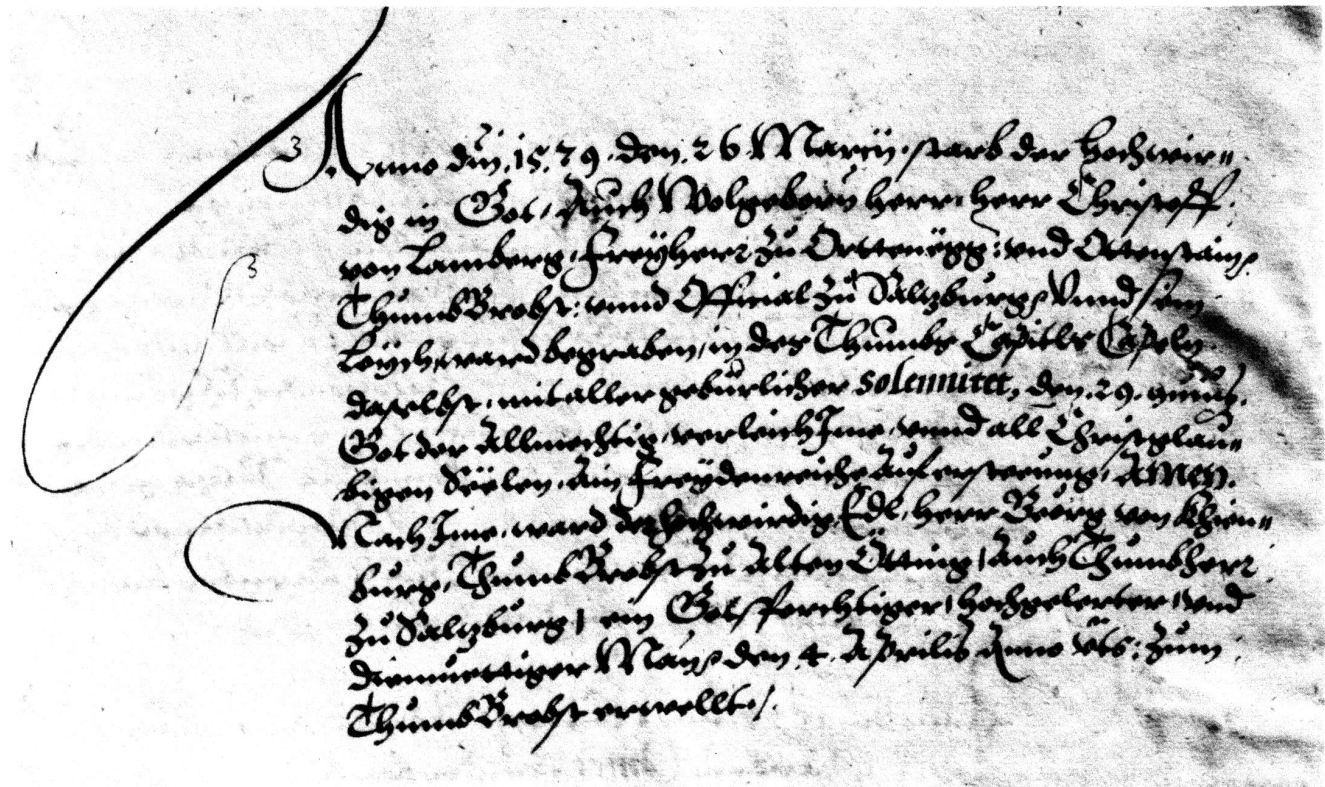 Anno dñi. 15.79. den. 26 Marcÿ. starb der hochwir=
dig in Got, Auch Wolgeborn herr. herr Christoff.
von Lamberg, Freÿherr zu Orttenegg: vnd Ottenstain,
Thumb Brobst: vnnd Official zu Saltzburg, Vnnd sein
Leÿch, ward begraben, in der Thumbs Capitls Capeln
daselbst, mit aller gebürlicher solennitet, den. 29.
Got der Allmechtig, verleich Jme, vnnd all Christglau=
bigen Seelen, Ain Freÿdenreiche Aufersteeung, Amen.
Nach Jme, ward der hochwirdig, Edl, herr Georg von Khien=
burg, Thumb Brobst zu Alten Ötting, Auch Thumbherr
zu Saltzburg, ein Gotsforchtiger, hochgelerter, vnd
diemuettiger Man, den. 4. Aprilis Anno zum
Thumb Brobst erwellt.